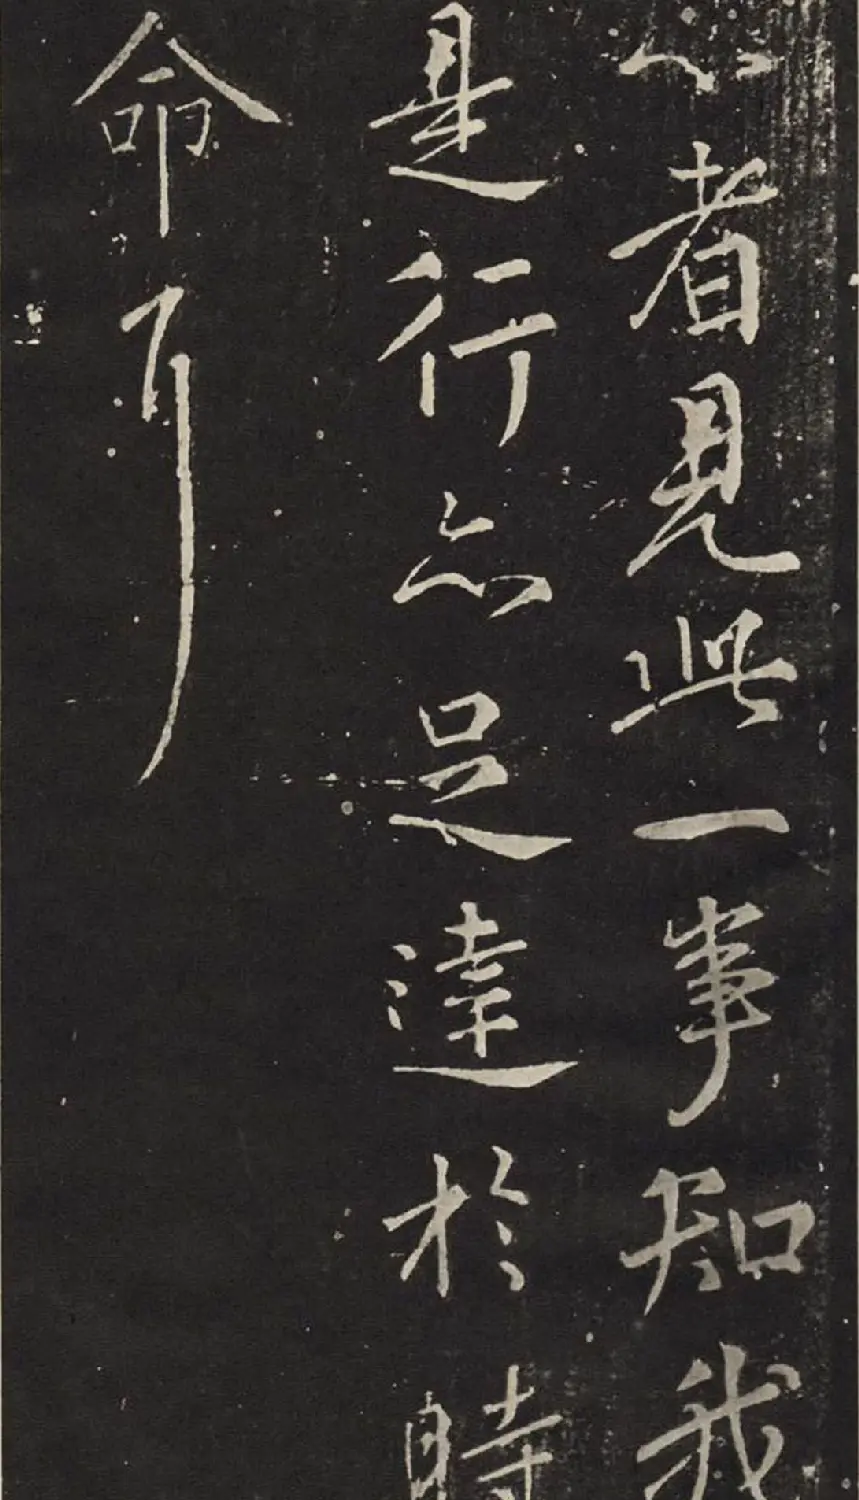 心者見此一事知我
是行亦足達於時
命耳